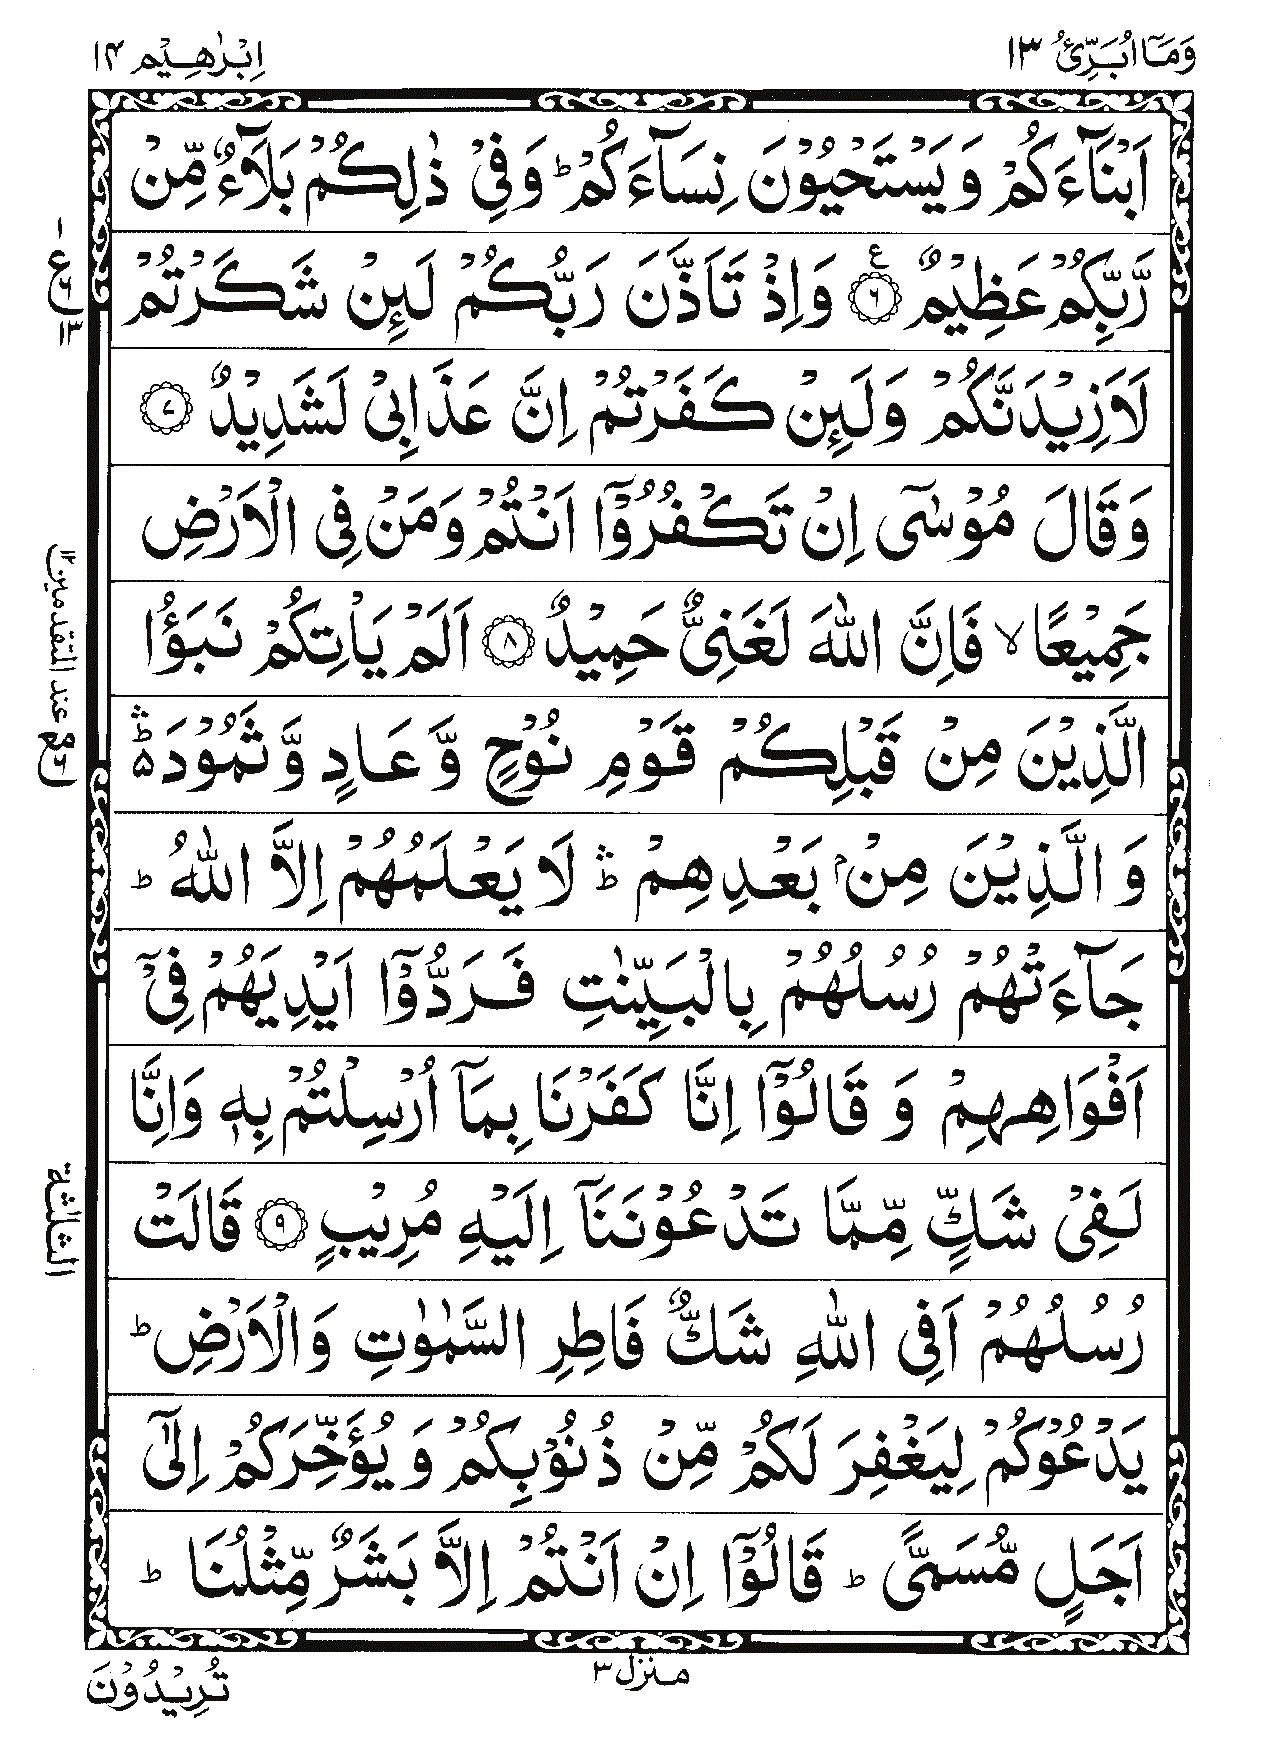 وَمَاۤ اُبَرِّئُ ١٣
اِبْرٰهِيْم ١٤
اَبْنَآءَكُمْ وَيَسْتَحْيُوْنَ نِسَآءَكُمْ ؕ وَفِيْ ذٰلِكُمْ بَلَآءٌ مِّنْ
رَّبِّكُمْ عَظِيْمٌ ﴿٦﴾ ع وَاِذْ تَاَذَّنَ رَبُّكُمْ لَئِنْ شَكَرْتُمْ
لَاَزِيْدَنَّكُمْ وَلَئِنْ كَفَرْتُمْ اِنَّ عَذَابِيْ لَشَدِيْدٌ ﴿٧﴾
وَقَالَ مُوْسٰۤى اِنْ تَكْفُرُوْۤا اَنْتُمْ وَمَنْ فِي الْاَرْضِ
جَمِيْعًا ۙ فَاِنَّ اللّٰهَ لَغَنِيٌّ حَمِيْدٌ ﴿٨﴾ اَلَمْ يَاْتِكُمْ نَبَؤُا
الَّذِيْنَ مِنْ قَبْلِكُمْ قَوْمِ نُوْحٍ وَّعَادٍ وَّثَمُوْدَ ۛؕ۵
وَالَّذِيْنَ مِنْۢ بَعْدِهِمْ ۛؕ لَا يَعْلَمُهُمْ اِلَّا اللّٰهُ ؕ
جَآءَتْهُمْ رُسُلُهُمْ بِالْبَيِّنٰتِ فَرَدُّوْۤا اَيْدِيَهُمْ فِيْۤ
اَفْوَاهِهِمْ وَقَالُوْۤا اِنَّا كَفَرْنَا بِمَاۤ اُرْسِلْتُمْ بِهٖ وَاِنَّا
لَفِيْ شَكٍّ مِّمَّا تَدْعُوْنَنَاۤ اِلَيْهِ مُرِيْبٍ ﴿٩﴾ قَالَتْ
رُسُلُهُمْ اَفِي اللّٰهِ شَكٌّ فَاطِرِ السَّمٰوٰتِ وَالْاَرْضِ ؕ
يَدْعُوْكُمْ لِيَغْفِرَ لَكُمْ مِّنْ ذُنُوْبِكُمْ وَيُؤَخِّرَكُمْ اِلٰۤى
اَجَلٍ مُّسَمًّى ؕ قَالُوْۤا اِنْ اَنْتُمْ اِلَّا بَشَرٌ مِّثْلُنَا ؕ
تُرِيْدُوْنَ
منزل ٣
ـ ع ٦ ١٣
مع ٦ عند المتقدمين ١٢
الثلٰثة